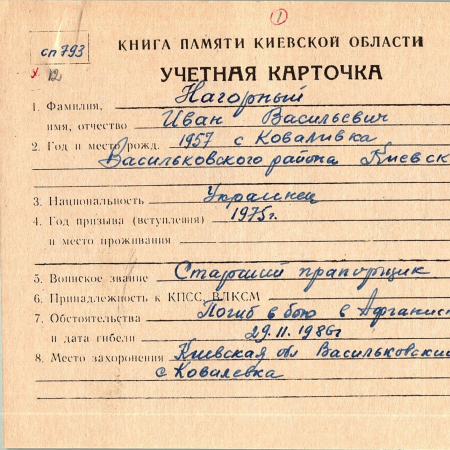 1
сп 793
У. 12
КНИГА ПАМЯТИ КИЕВСКОЙ ОБЛАСТИ
УЧЕТНАЯ КАРТОЧКА
1. Фамилия, Нагорный
имя, отчество Иван Васильевич
2. Год и место рожд. 1957 с Коваливка
Васильковского района Киевск
3. Национальность Украинец
4. Год призыва (вступления) 1975г.
и место проживания
5. Воинское звание Старший прапорщик
6. Принадлежность к КПСС, ВЛКСМ
7. Обстоятельства Погиб в бою в Афганис
и дата гибели 29.11.1986г
8. Место захоронения Киевская обл Васильковский
с Ковалевка